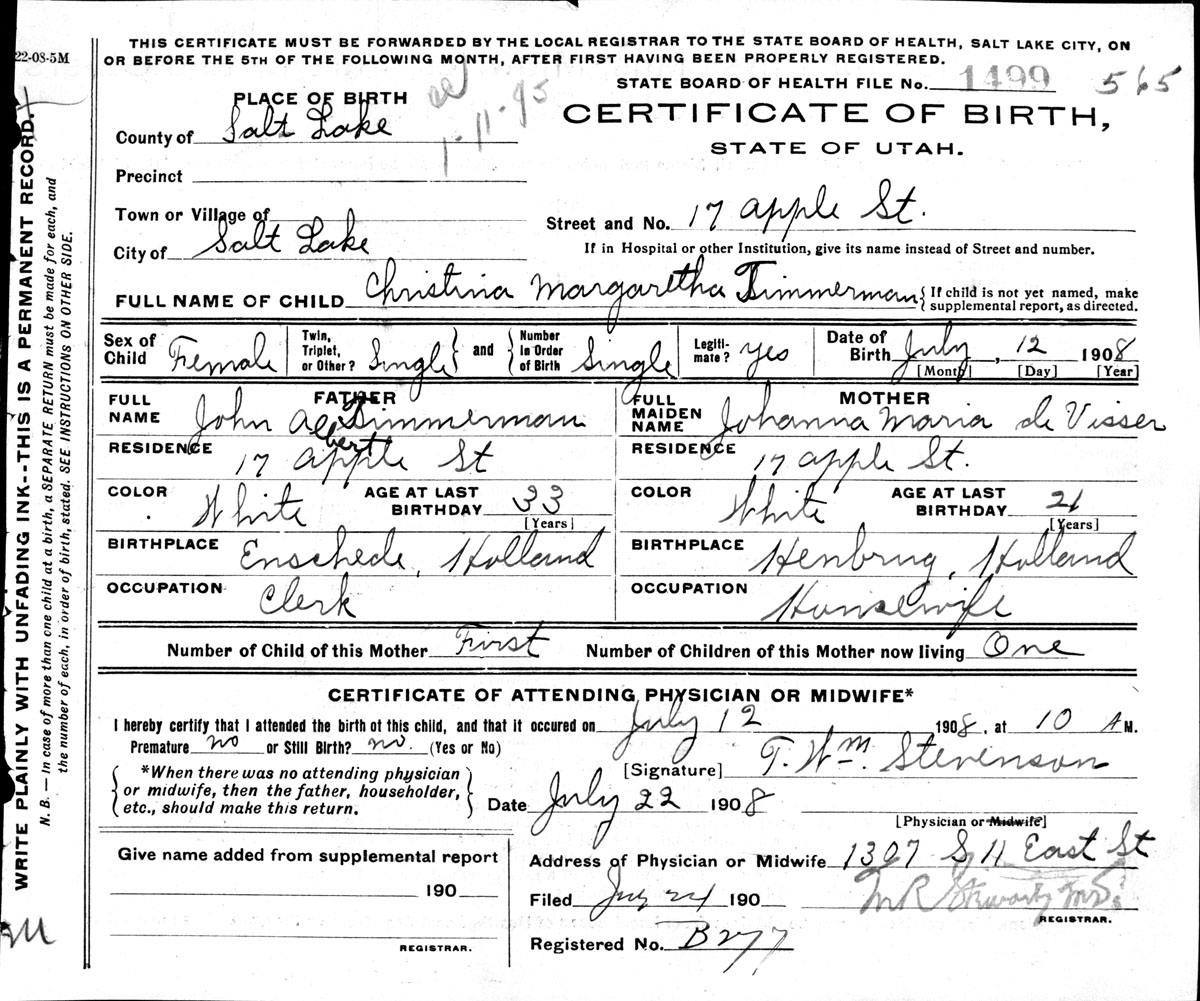 22-08-5M
THIS CERTIFICATE MUST BE FORWARDED BY THE LOCAL REGISTRAR TO THE STATE BOARD OF HEALTH, SALT LAKE CITY, ON
OR BEFORE THE 5TH OF THE FOLLOWING MONTH, AFTER FIRST HAVING BEEN PROPERLY REGISTERED.
STATE BOARD OF HEALTH FILE No. 1499 565
1-11-95
PLACE OF BIRTH
CERTIFICATE OF BIRTH,
STATE OF UTAH.
County of Salt Lake
Precinct
Town or Village of
Street and No. 17 apple St.
City of Salt Lake
If in Hospital or other Institution, give its name instead of Street and number.
FULL NAME OF CHILD Christina Margaretha Timmerman { If child is not yet named, make
supplemental report, as directed.
Sex of Child Female Twin, Triplet, or Other? Single } and { Number In Order of Birth Single Legiti-mate? yes Date of Birth July, 12 1908
[Month] [Day] [Year]
FATHER MOTHER
FULL NAME John Albert Timmerman FULL MAIDEN NAME Johanna Maria de Visser
RESIDENCE 17 apple St RESIDENCE 17 apple St.
COLOR White AGE AT LAST BIRTHDAY 33 [Years] COLOR White AGE AT LAST BIRTHDAY 21 [Years]
BIRTHPLACE Enschede, Holland BIRTHPLACE Henbrug, Holland
OCCUPATION Clerk OCCUPATION Housewife
Number of Child of this Mother First Number of Children of this Mother now living One
CERTIFICATE OF ATTENDING PHYSICIAN OR MIDWIFE*
I hereby certify that I attended the birth of this child, and that it occured on July 12 1908, at 10 AM.
Premature no or Still Birth? no. (Yes or No)
[Signature] T. Wm. Stevenson
{ *When there was no attending physician
or midwife, then the father, householder,
etc., should make this return. }
Date July 22 1908
[Physician or Midwife]
Give name added from supplemental report
190
REGISTRAR.
Address of Physician or Midwife 1307 S 11 East St
Filed July 24 190
REGISTRAR.
Registered No.
WRITE PLAINLY WITH UNFADING INK--THIS IS A PERMANENT RECORD.
N. B. — In case of more than one child at a birth, a SEPARATE RETURN must be made for each, and
the number of each, in order of birth, stated. SEE INSTRUCTIONS ON OTHER SIDE.